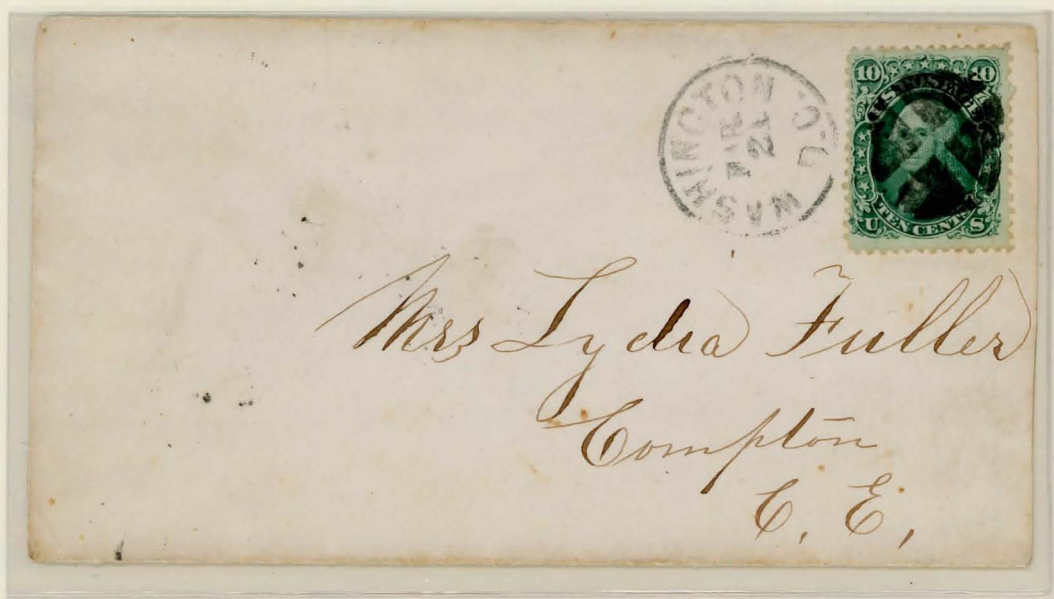 WASHINGTON D.C.
APR
21
10 10
U.S. POSTAGE
TEN CENTS
U S
Mrs Lydia Fuller
Compton
C. E.